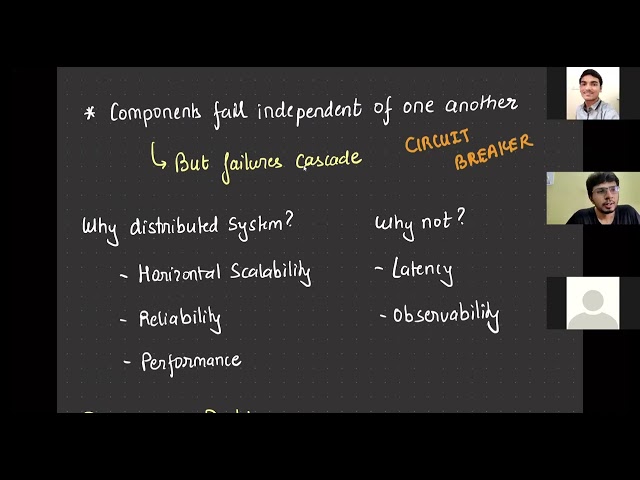 * Components fail independent of one another
↳ But failures cascade
CIRCUIT
BREAKER
Why distributed system?
- Horizontal Scalability
- Reliability
- Performance
Why not?
- Latency
- Observability